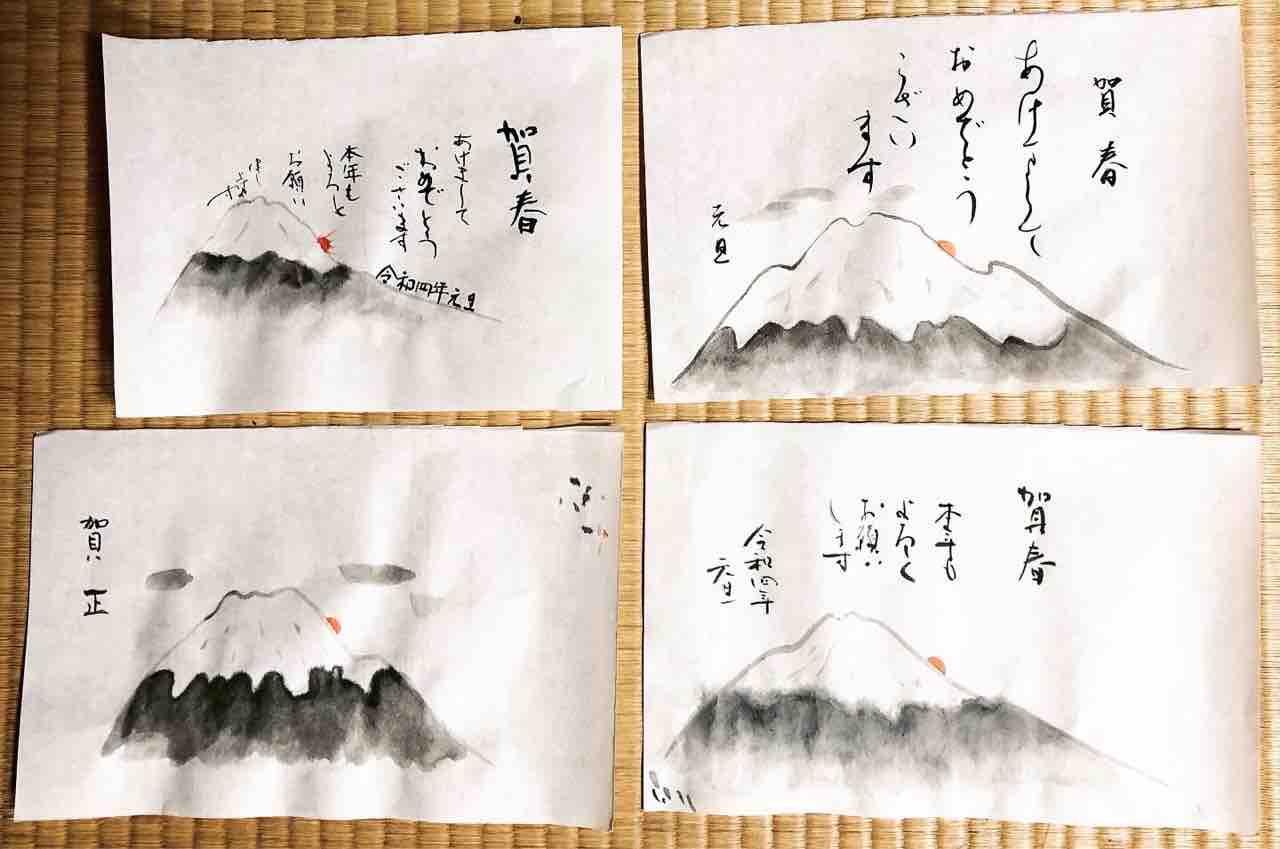 賀春
あけまして
おめでとう
ございます
本年も
よろしく
お願い
します
令和四年元旦
賀春
あけまして
おめでとう
ございます
元旦
賀正
賀春
本年も
よろしく
お願い
します
令和四年
元旦